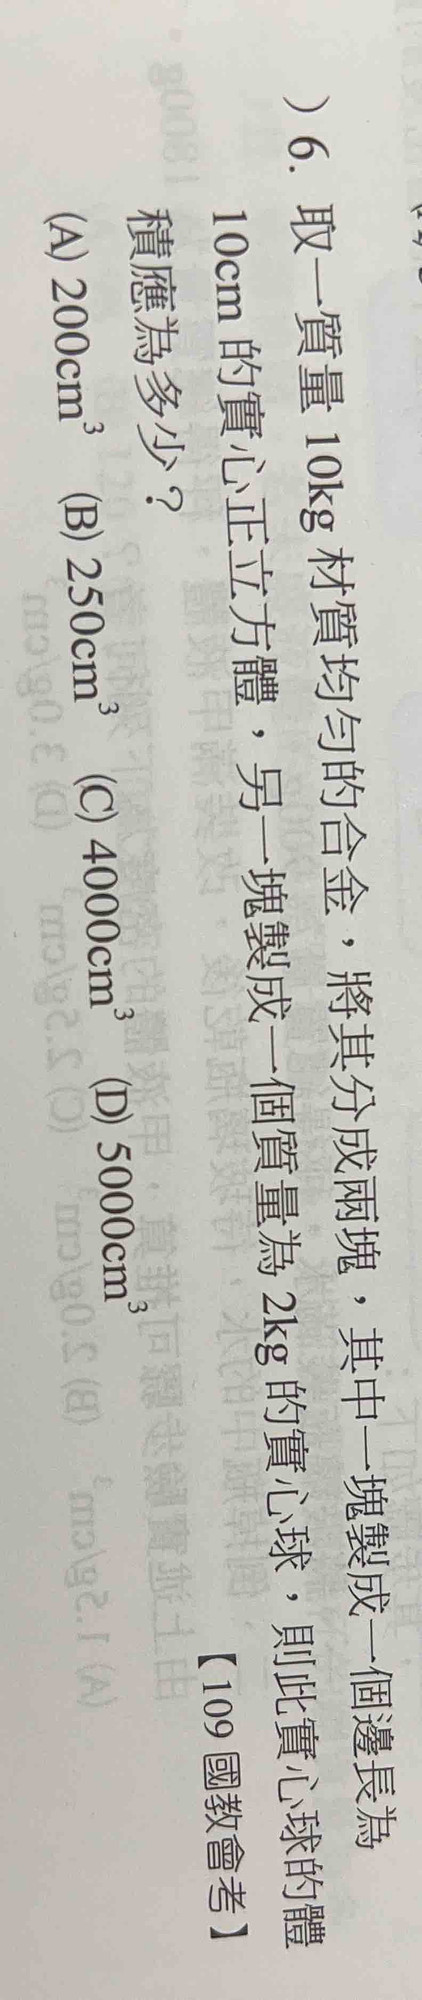 ）6. 取一質量 10kg 材質均勻的合金，將其分成兩塊，其中一塊製成一個邊長為
10cm 的實心正立方體，另一塊製成一個質量為 2kg 的實心球，則此實心球的體
積應為多少？【109 國教會考】
(A) 200cm³ (B) 250cm³ (C) 4000cm³ (D) 5000cm³